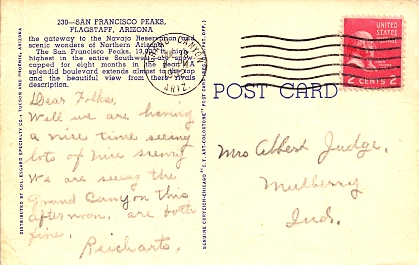 230—SAN FRANCISCO PEAKS,
FLAGSTAFF, ARIZONA
the gateway to the Navajo Reservation and
scenic wonders of Northern Arizona.
The San Francisco Peaks, 13,000 ft. high
highest in the entire Southwest are snow-
capped for eight months in the year. A
splendid boulevard extends almost to the top
and the beautiful view from there rivals
description.
Dear Folks,
Well we are having
a nice time seeing
lots of nice scenery
We are seeing the
Grand Canyon this
afternoon. are both
fine.
Reicharts.
CANYON
ARIZ.
UNITED
STATES
2 CENTS 2
POST CARD
Mrs Albert Judge.
Mulberry
Ind.
DISTRIBUTED BY LOLLESGARD SPECIALTY CO., TUCSON AND PHOENIX, ARIZONA
GENUINE CURTEICH-CHICAGO "C.T. ART-COLORTONE" POST CARD (REG. U.S. PAT. OFF.)